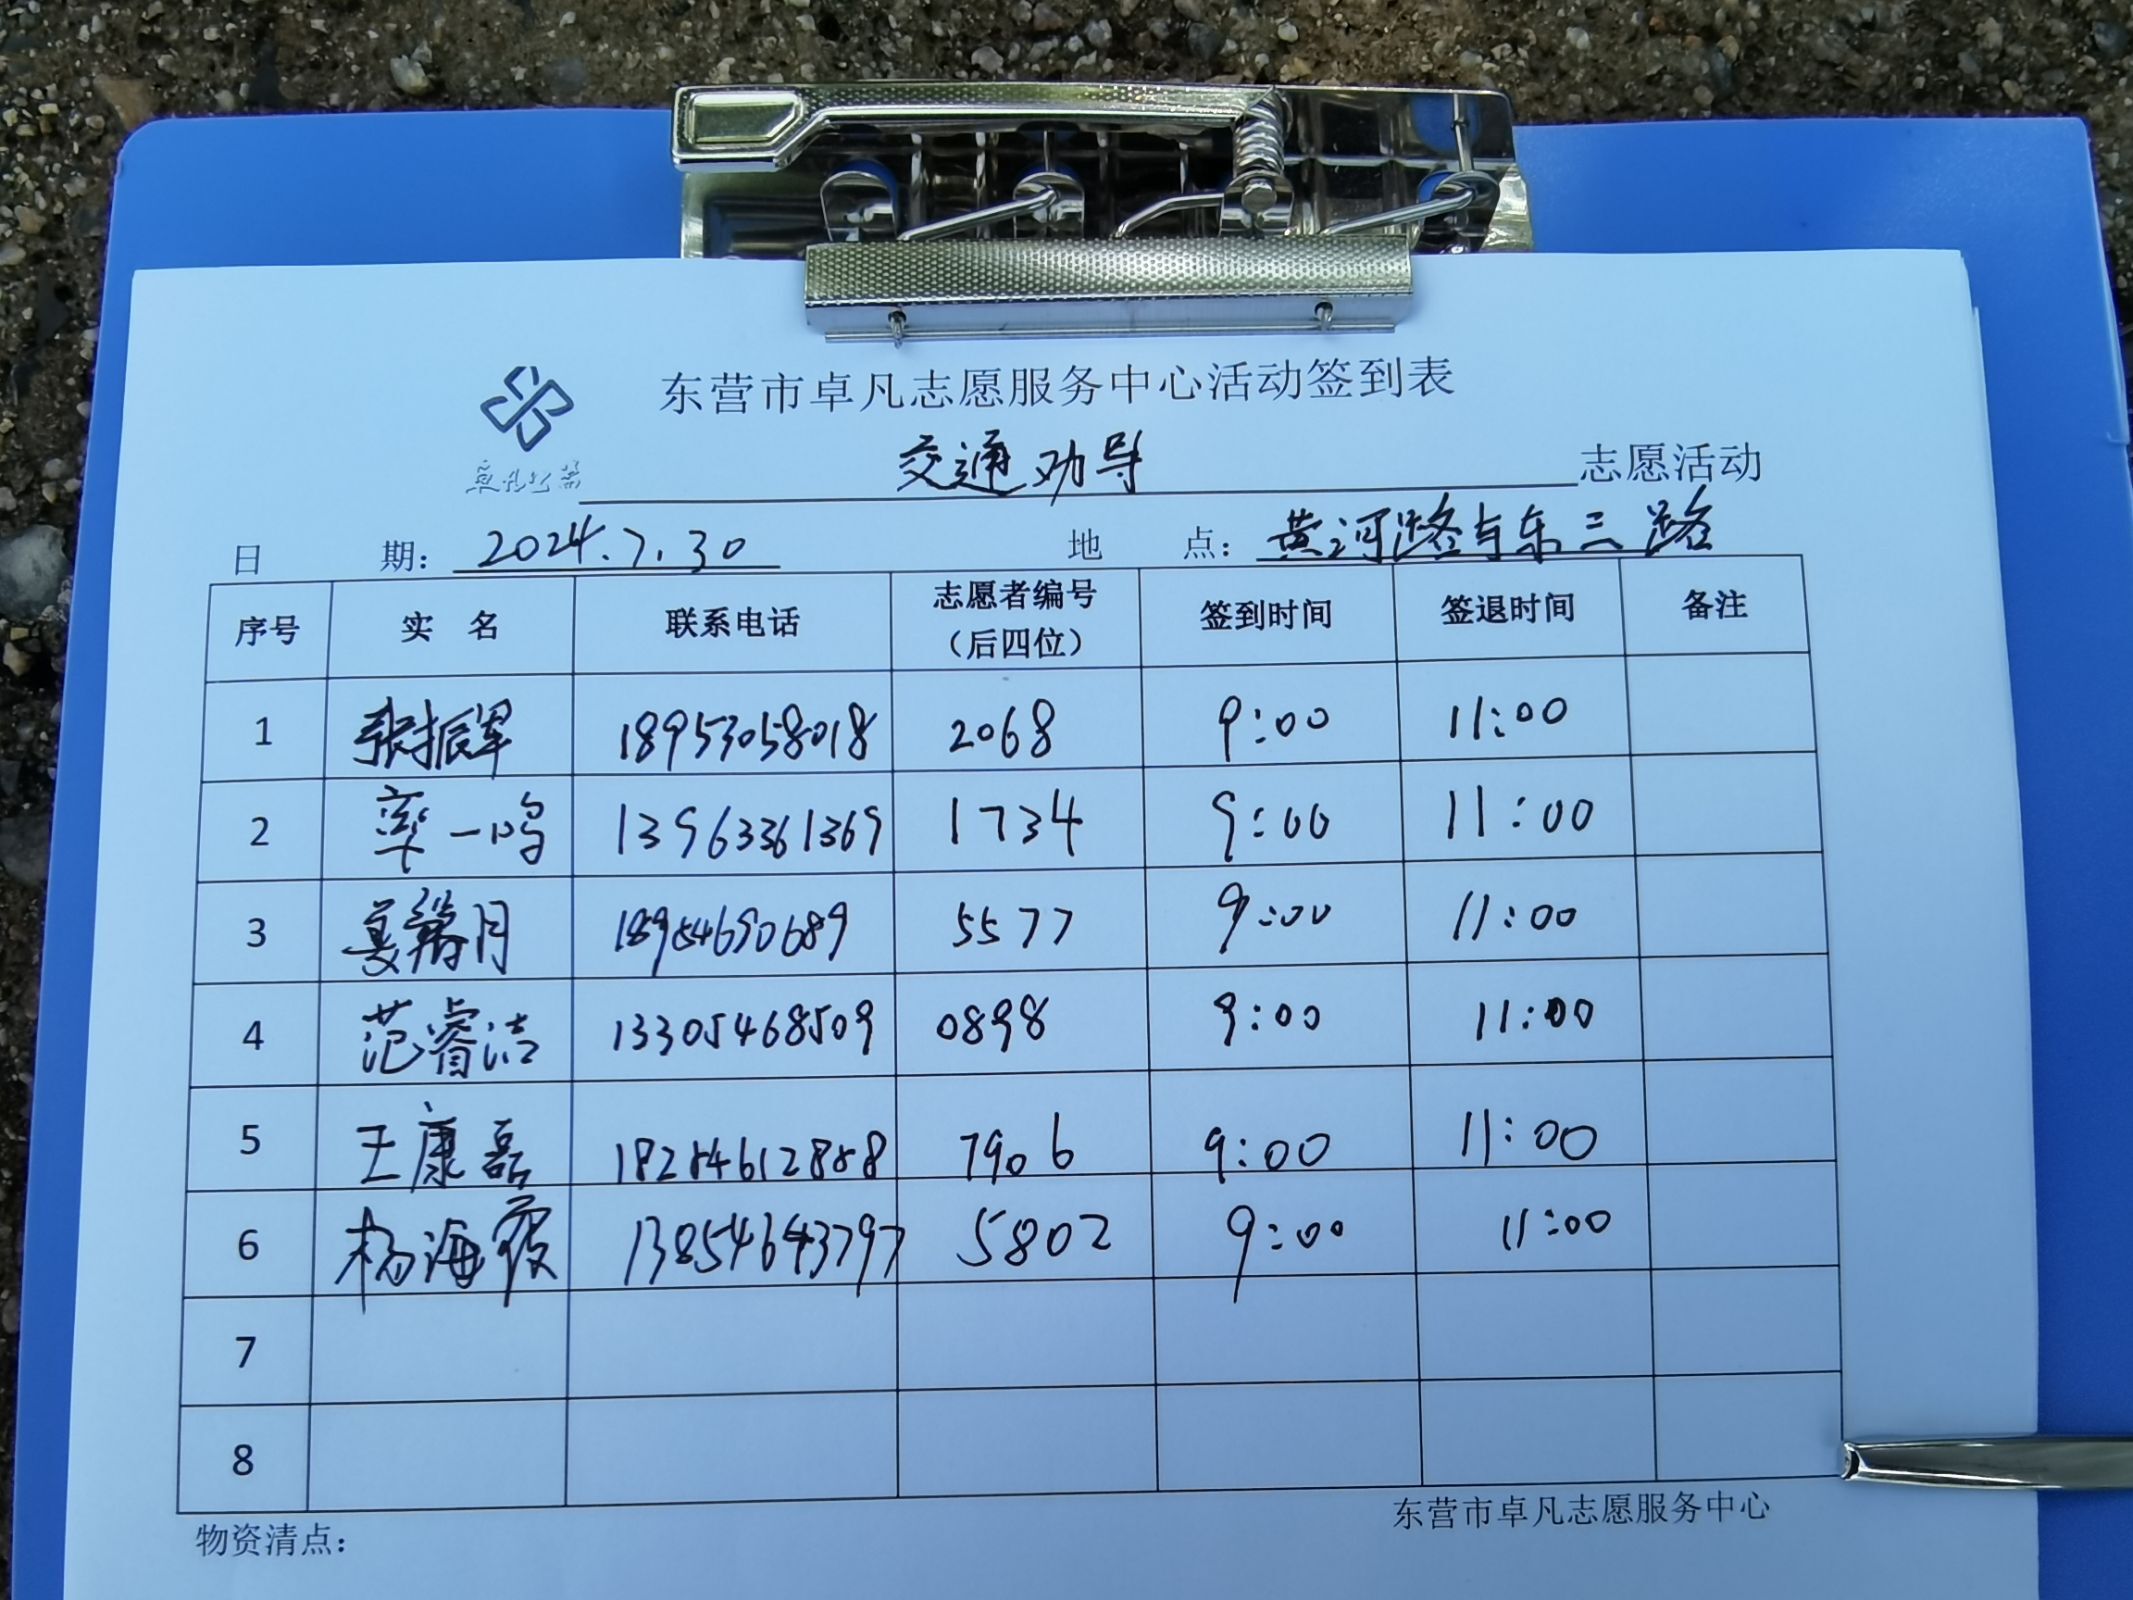 东营市卓凡志愿服务中心活动签到表
卓凡公益
交通劝导 志愿活动
日 期： 2024.7.30 地 点： 黄河路与东三路
序号 实 名 联系电话 志愿者编号（后四位） 签到时间 签退时间 备注
1 张振军 18953058018 2068 9:00 11:00
2 率一鸣 13963361369 1734 9:00 11:00
3 月 18954690689 5577 9:00 11:00
4 范睿洁 13305468509 0898 9:00 11:00
5 王康磊 18284612888 7906 9:00 11:00
6 杨海霞 13854643797 5802 9:00 11:00
7
8
物资清点： 东营市卓凡志愿服务中心